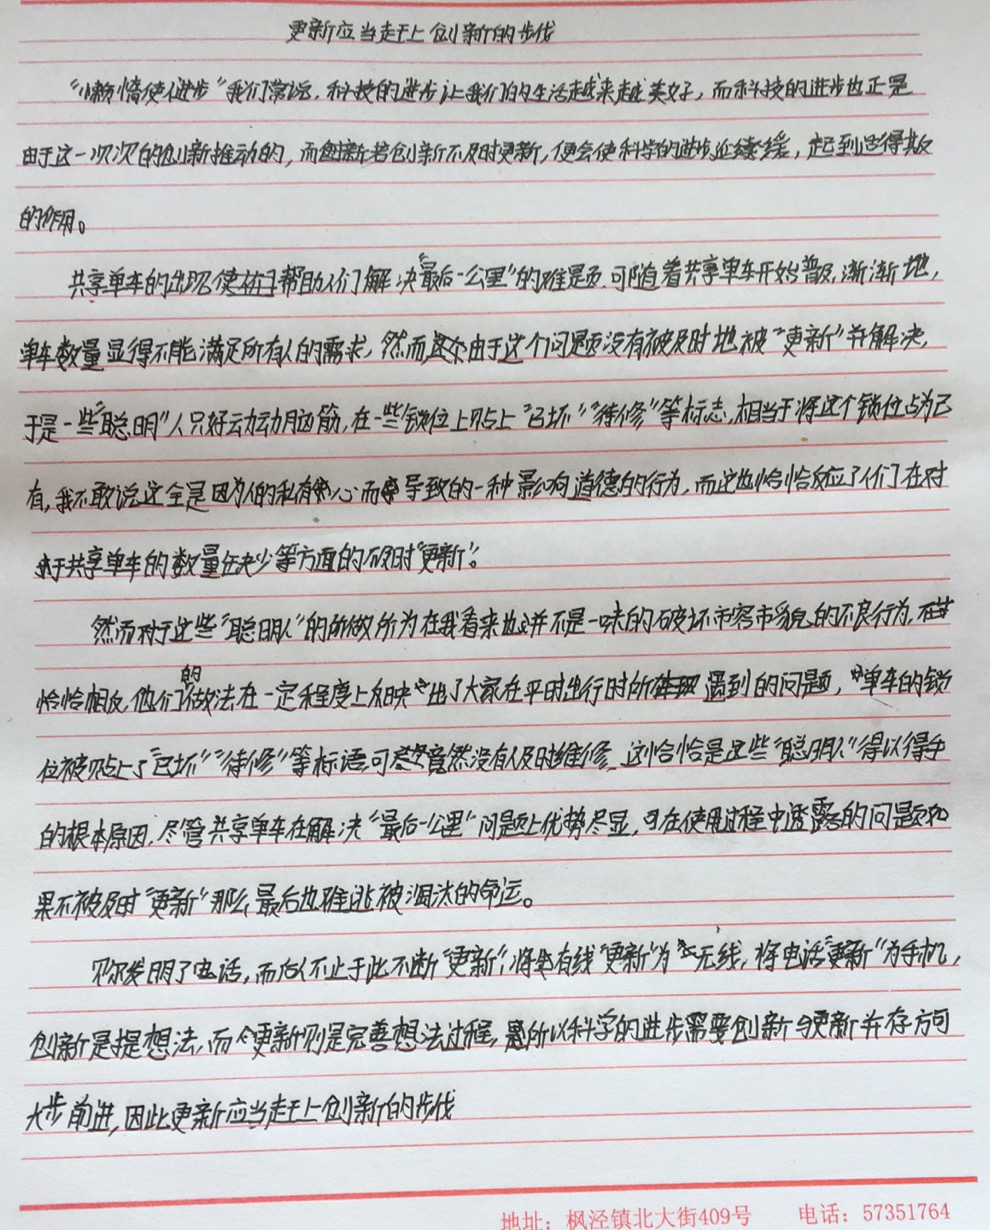 更新应当赶上创新的步伐
"懒惰使进步"我们常说，科技的进步让我们的生活越来越美好，而科技的进步也正是
由于这一次次的创新推动的，而若创新不及时更新，便会使科学的进步延缓，起到适得其反
的作用。
共享单车的出现使帮助人们解决"最后一公里"的难题，可随着共享单车开始普及，渐渐地，
单车数量显得不能满足所有人的需求，然而由于这个问题没有被及时地被"更新"并解决，
于是一些"聪明"人只好动动脑筋，在一些锁位上贴上"已坏""待修"等标志，相当于将这个锁位占为己
有，我不敢说这全是因为人的私有心而导致的一种影响道德的行为，而这也恰恰反应了人们在对
于共享单车的数量缺少等方面的不及时"更新"。
然而对于这些"聪明人"的所做所为在我看来也并不是一味的破坏市容市貌的不良行为，
恰恰相反，他们的做法在一定程度上反映出了大家在平时出行时所遇到的问题，单车的锁
位被贴上了"已坏""待修"等标语，可竟然没有人及时维修，这恰恰是这些"聪明人"得以得手
的根本原因，尽管共享单车在解决"最后一公里"问题上优势尽显，可在使用过程中透露的问题如
果不被及时"更新"那么最后也难逃被淘汰的命运。
贝尔发明了电话，而后人不止于此不断"更新"，将有线"更新"为无线，将电话"更新"为手机，
创新是提想法，而更新则是完善想法过程，所以科学的进步需要创新与更新并存方可
大步前进，因此更新应当赶上创新的步伐
地址：枫泾镇北大街409号 电话：57351764